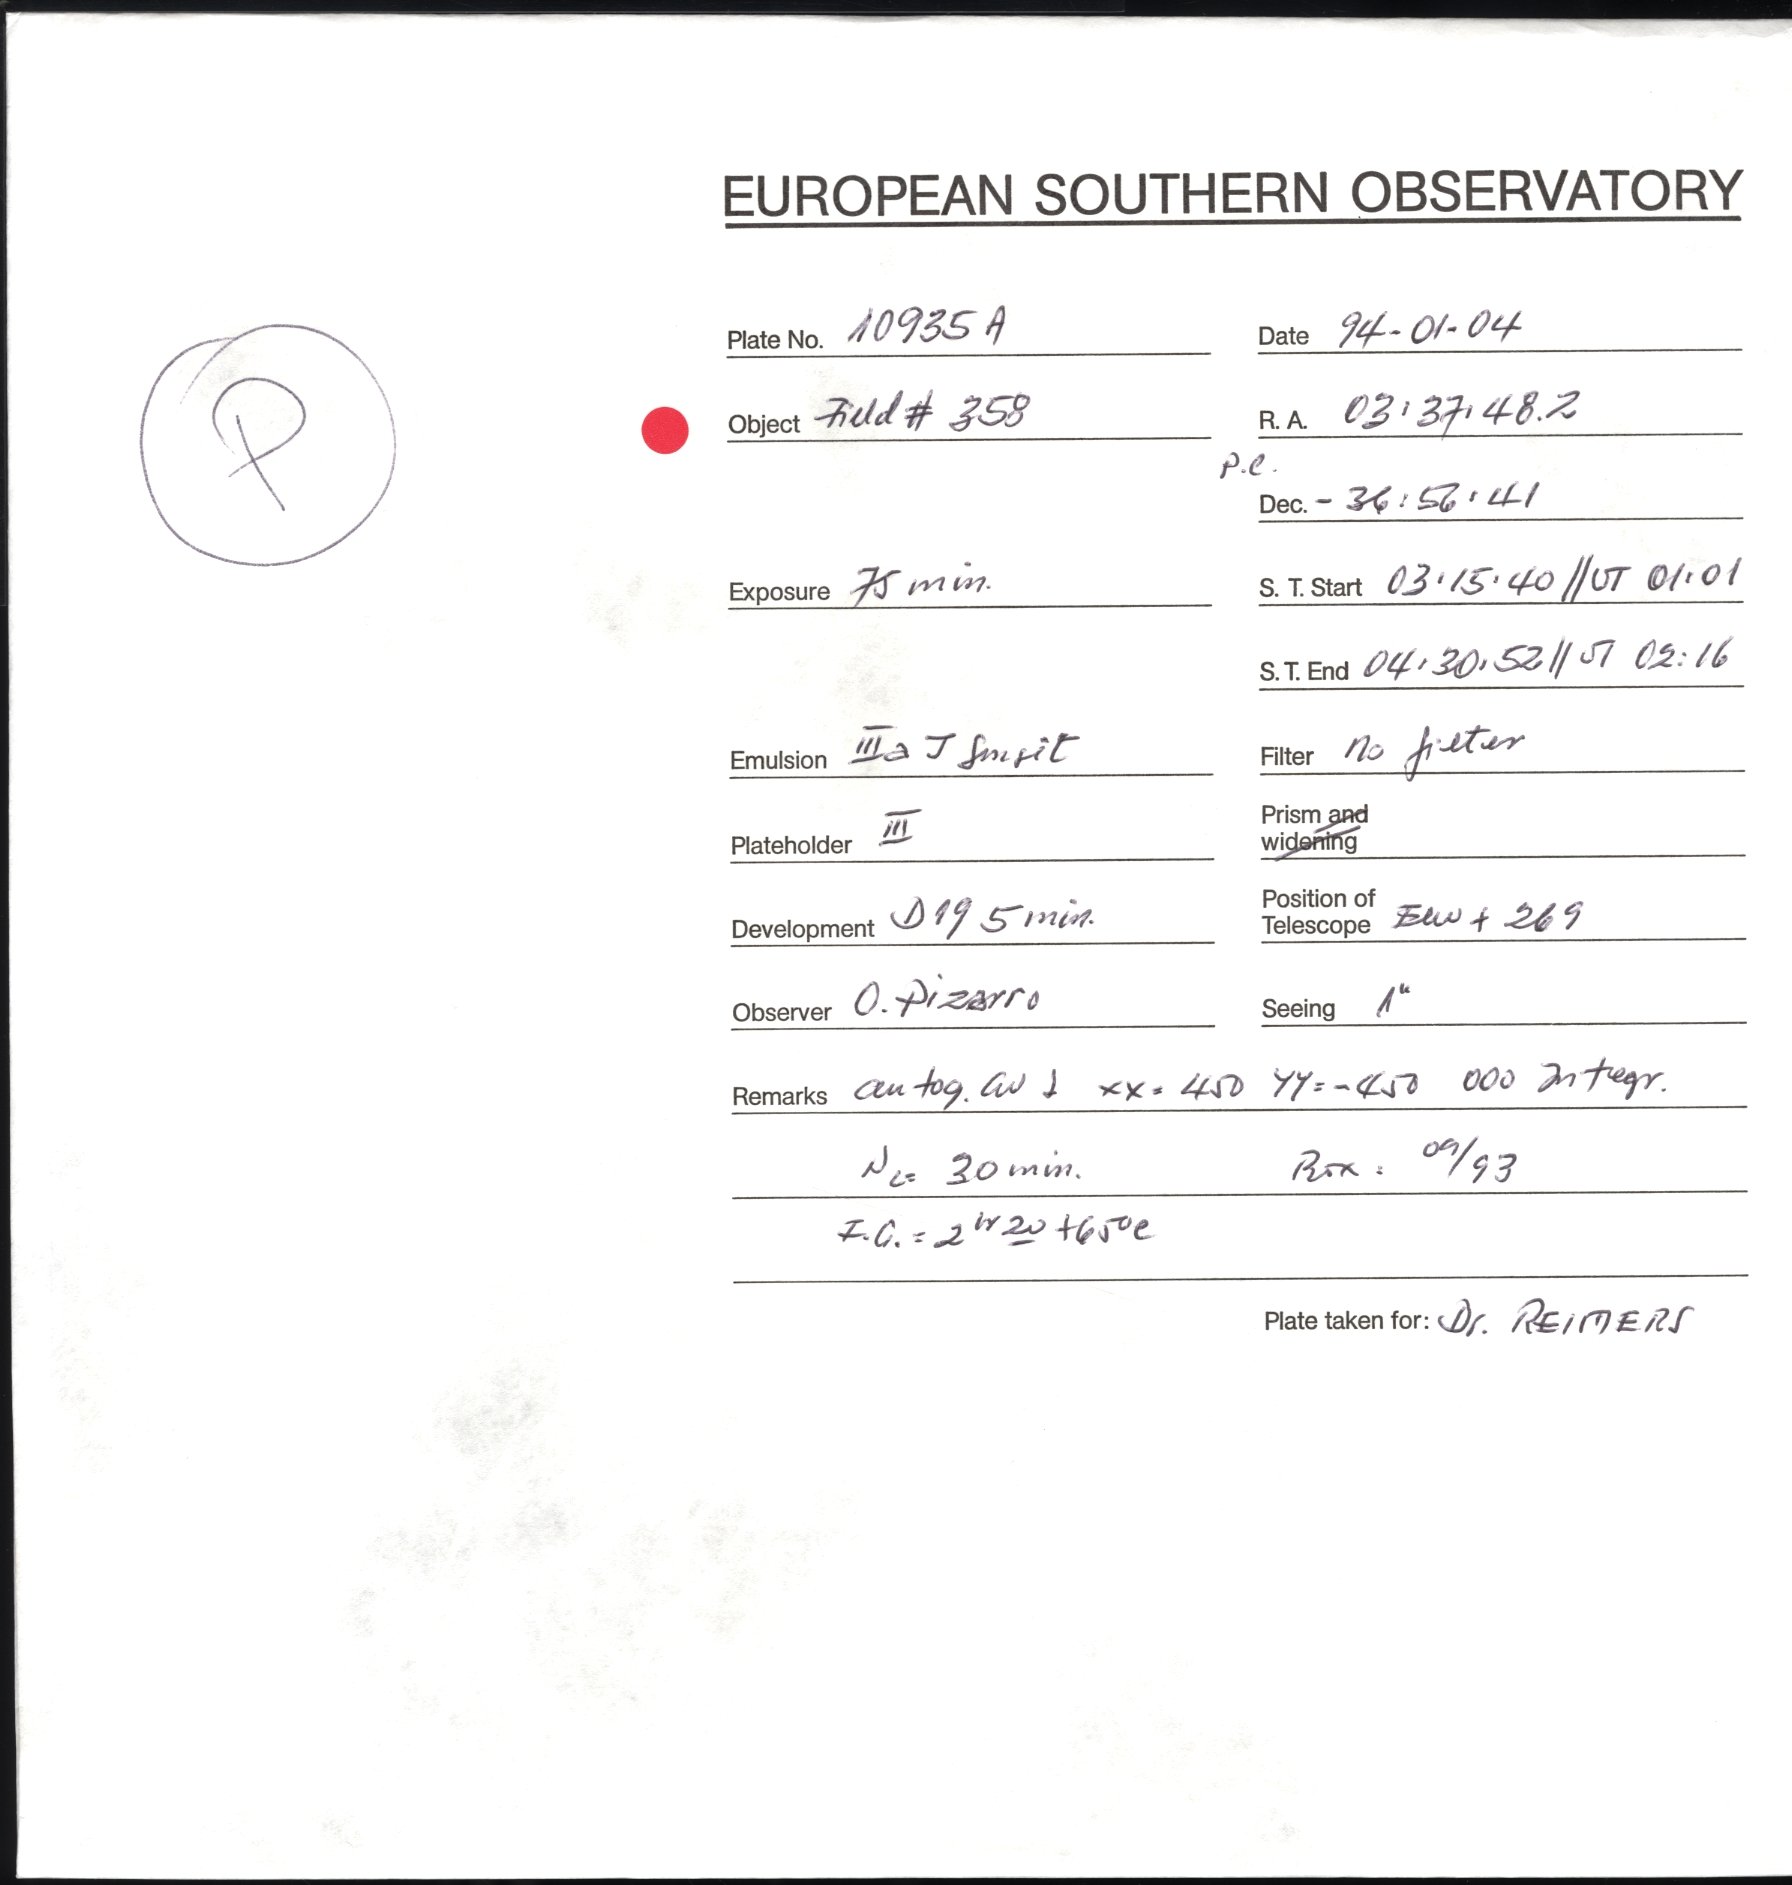 EUROPEAN SOUTHERN OBSERVATORY
Plate No. 10935 A Date 94-01-04
P
Object Field # 358 R. A. 03:37:48.2
P.C.
Dec. - 36:56:41
Exposure 75 min. S. T. Start 03:15:40 // UT 01:01
S. T. End 04:30:52 // UT 02:16
Emulsion IIIa J Filter no filter
Plateholder III Prism and
widening
Development D19 5 min. Position of
Telescope EW + 269
Observer O. Pizarro Seeing 1"
Remarks autog. xx = 450 YY = -450 000 Integr.
30 min. Box : 09/93
Plate taken for: Dr. REIMERS